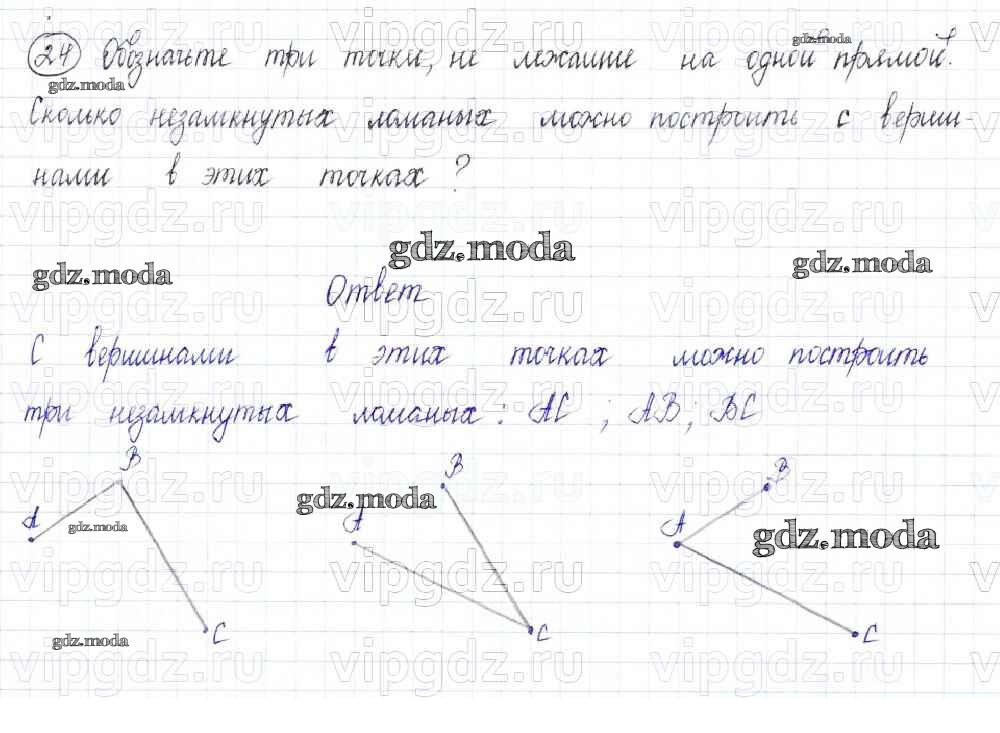 24 Обозначьте три точки, не лежащие на одной прямой.
Сколько незамкнутых ломаных можно построить с верши-
нами в этих точках?
Ответ
С вершинами в этих точках можно построить
три незамкнутых ломаных: АС; АВ; ВС
В
А
С
В
А
С
В
А
С
gdz.moda
gdz.moda
gdz.moda
gdz.moda
gdz.moda
gdz.moda
gdz.moda
gdz.moda
gdz.moda
vipgdz.ru
vipgdz.ru
vipgdz.ru